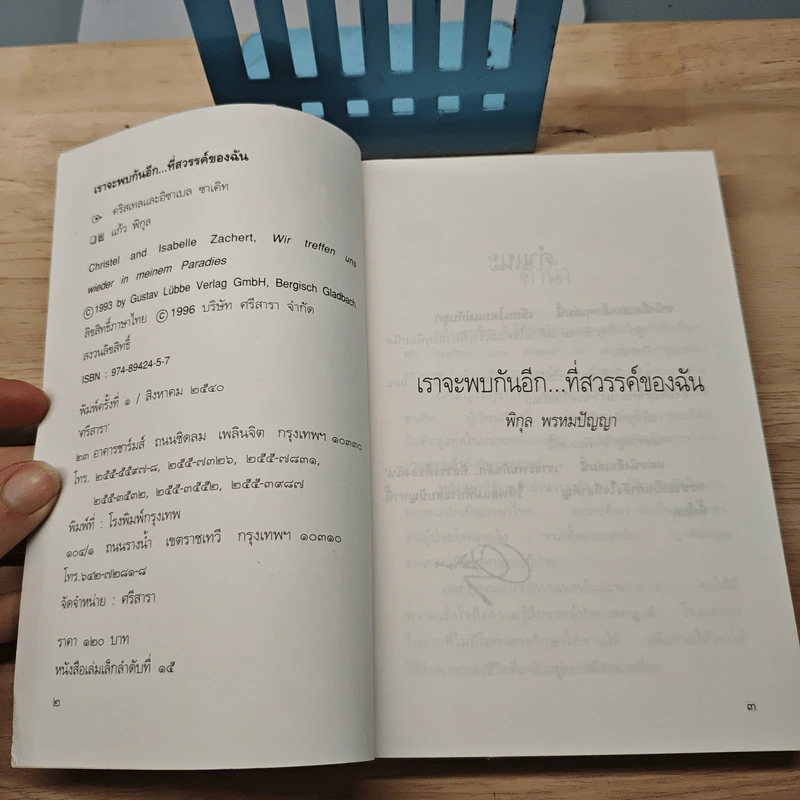 เราจะพบกันอีก...ที่สวรรค์ของฉัน
คริสเทลและอิซาเบล ซาเคิท
แก้ว พิกุล
Christel and Isabelle Zachert, Wir treffen uns
wieder in meinem Paradies
©1993 by Gustav Lübbe Verlag GmbH, Bergisch Gladbach.
ลิขสิทธิ์ภาษาไทย ©1996 บริษัท ศรีสารา จำกัด
สงวนลิขสิทธิ์
ISBN : 974-89424-5-7
พิมพ์ครั้งที่ ๑ / สิงหาคม ๒๕๔๐
'ศรีสารา'
๒๓ อาคารชาร์มส์ ถนนชิดลม เพลินจิต กรุงเทพฯ ๑๐๓๓๐
โทร. ๒๕๕-๕๕๙๗-๘, ๒๕๕-๗๓๒๖, ๒๕๕-๗๘๓๑,
๒๕๕-๓๕๓๒, ๒๕๕-๓๕๕๒, ๒๕๕-๓๙๘๗
พิมพ์ที่ : โรงพิมพ์กรุงเทพ
๑๐๔/๑ ถนนรางน้ำ เขตราชเทวี กรุงเทพฯ ๑๐๓๑๐
โทร.๖๔๒-๗๒๘๑-๘
จัดจำหน่าย : ศรีสารา
ราคา ๑๒๐ บาท
หนังสือเล่มเล็กลำดับที่ ๑๕
๒
เราจะพบกันอีก...ที่สวรรค์ของฉัน
พิกุล พรหมปัญญา
๓